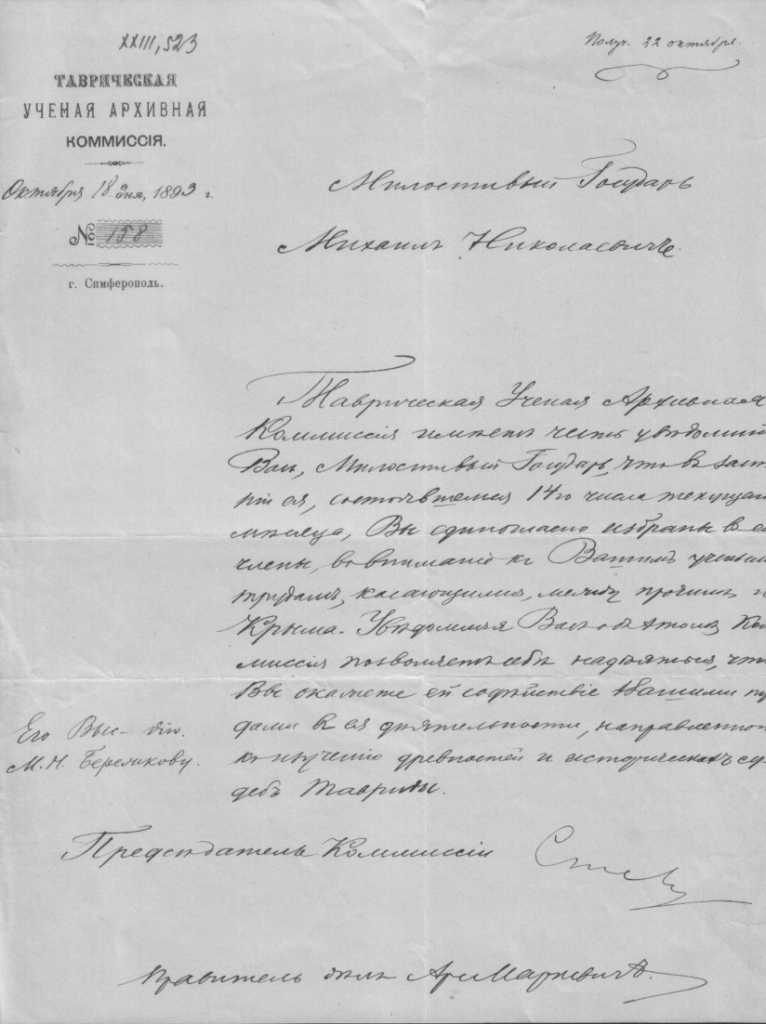 XXIII, 523
Получ. 22 октября.
ТАВРИЧЕСКАЯ
УЧЕНАЯ АРХИВНАЯ
КОММИССІЯ.
Октября 18 дня, 1893 г.
№ 158
г. Симферополь.
Милостивый Государь
Михаилъ Николаевичъ.
Таврическая Ученая Архивная
Коммиссія имѣетъ честь увѣдомить
Васъ, Милостивый Государь, что въ засѣ
ніи ея, состоявшемся 14го числа текущаго
мѣсяца, Вы единогласно избраны въ ея
члены, во вниманіе къ Вашимъ ученым
трудамъ, касающимся, между прочимъ, и
Крыма. Увѣдомляя Васъ объ этомъ, Ком
миссія позволяетъ себѣ надѣяться, что
Вы окажете ей содѣйствіе Вашими тру
дами въ ея дѣятельности, направленной
къ изученію древностей и историческихъ су
дебъ Тавриды.
Его Выс-дію.
М. Н. Бережкову.
Предсѣдатель Коммиссіи
Правитель дѣлъ Арс. Маркевичъ.